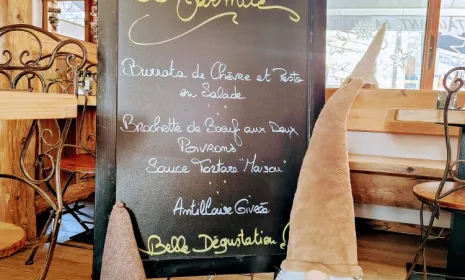 Burrata de Chèvre et Pesto
en Salade
Brochette de Boeuf aux Deux
Poivrons
Sauce Tartare "Maison"
Antillaise Givrée
Belle Dégustation